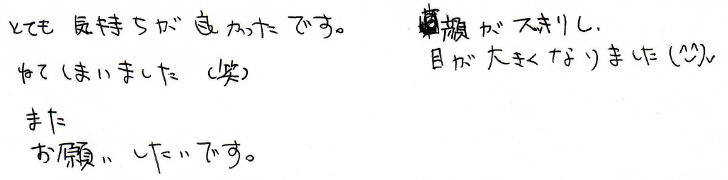 とても 気持ちが 良かったです。
ねてしまいました (笑)
また
お願いしたいです。
顔がスッキリし、
目が大きくなりました(^^)